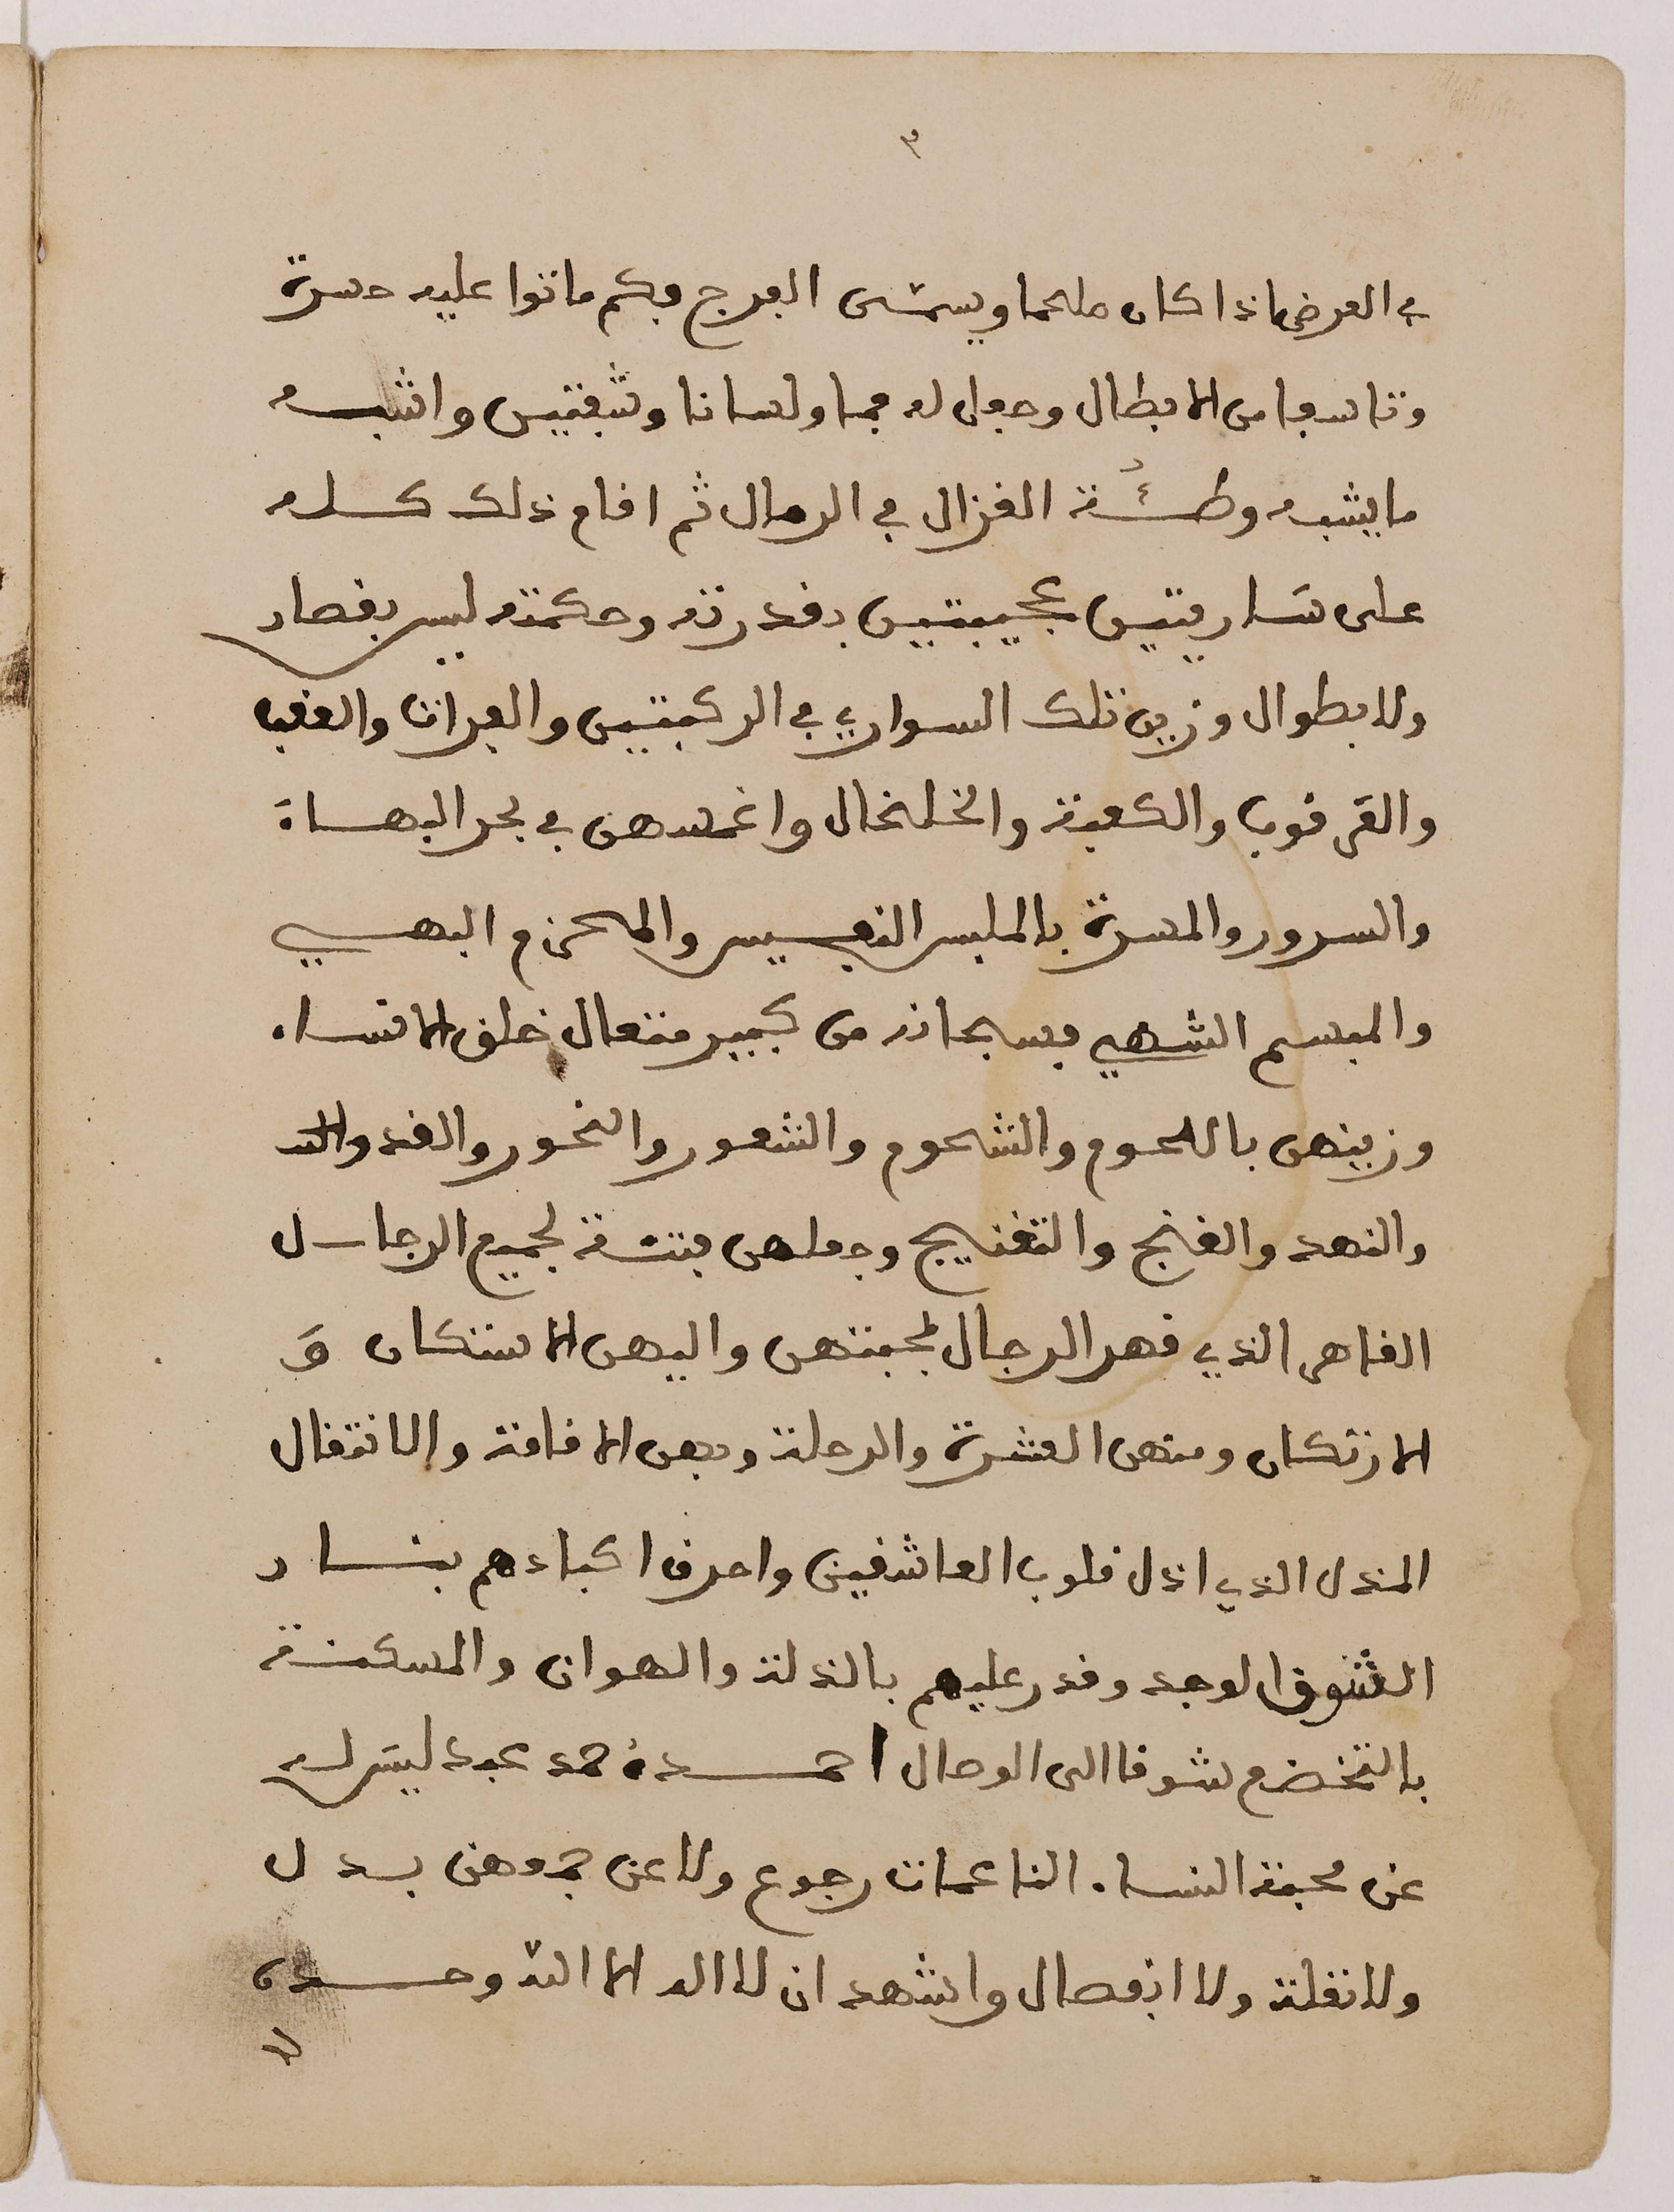 ٣
في العرض اذا كان ملحما ويسمى الفرج فكم ماتوا عليه حسرة
وتاسفا من الابطال وجعل له فما ولسانا وشفتين واشبه
ما يشبه وطئة الغزال في الرمال ثم اقام ذلك كله
على ساريتين عجيبتين بقدرته وحكمته ليس بقصار
ولا بطوال وزين تلك السواري في الركبتين والعراف والعقب
والقرقوب والكعبة والخلخال واغمسهن في بحر البهاء
والسرور والمسرة بالملبس النفيس والمحزم البهي
والمبسم الشهي فسبحانه من كبير متعال خلق النساء
وزينهن باللحوم والشحوم والشعور والنحور والقد
والنهد والغنج والتغنيج وجعلهن فتنة لجميع الرجال
القاهر الذي قهر الرجال لمحبتهن واليهن الاستكان و
الارتكان ومنهن العشرة والرحلة وبهن الاقامة والانتقال
المذل الذي اذل قلوب العاشقين واحرق اكبادهم بنار
الشوق الوجد وقدر عليهم بالذلة والهوان والمسكنة
بالتخضع شوقا الى الوصال احمده حمد عبد ليس له
عن محبة النساء الناعمات رجوع ولا عن بدل
ولا نقلة ولا انفصال واشهد ان لا اله الا الله وحده
لا